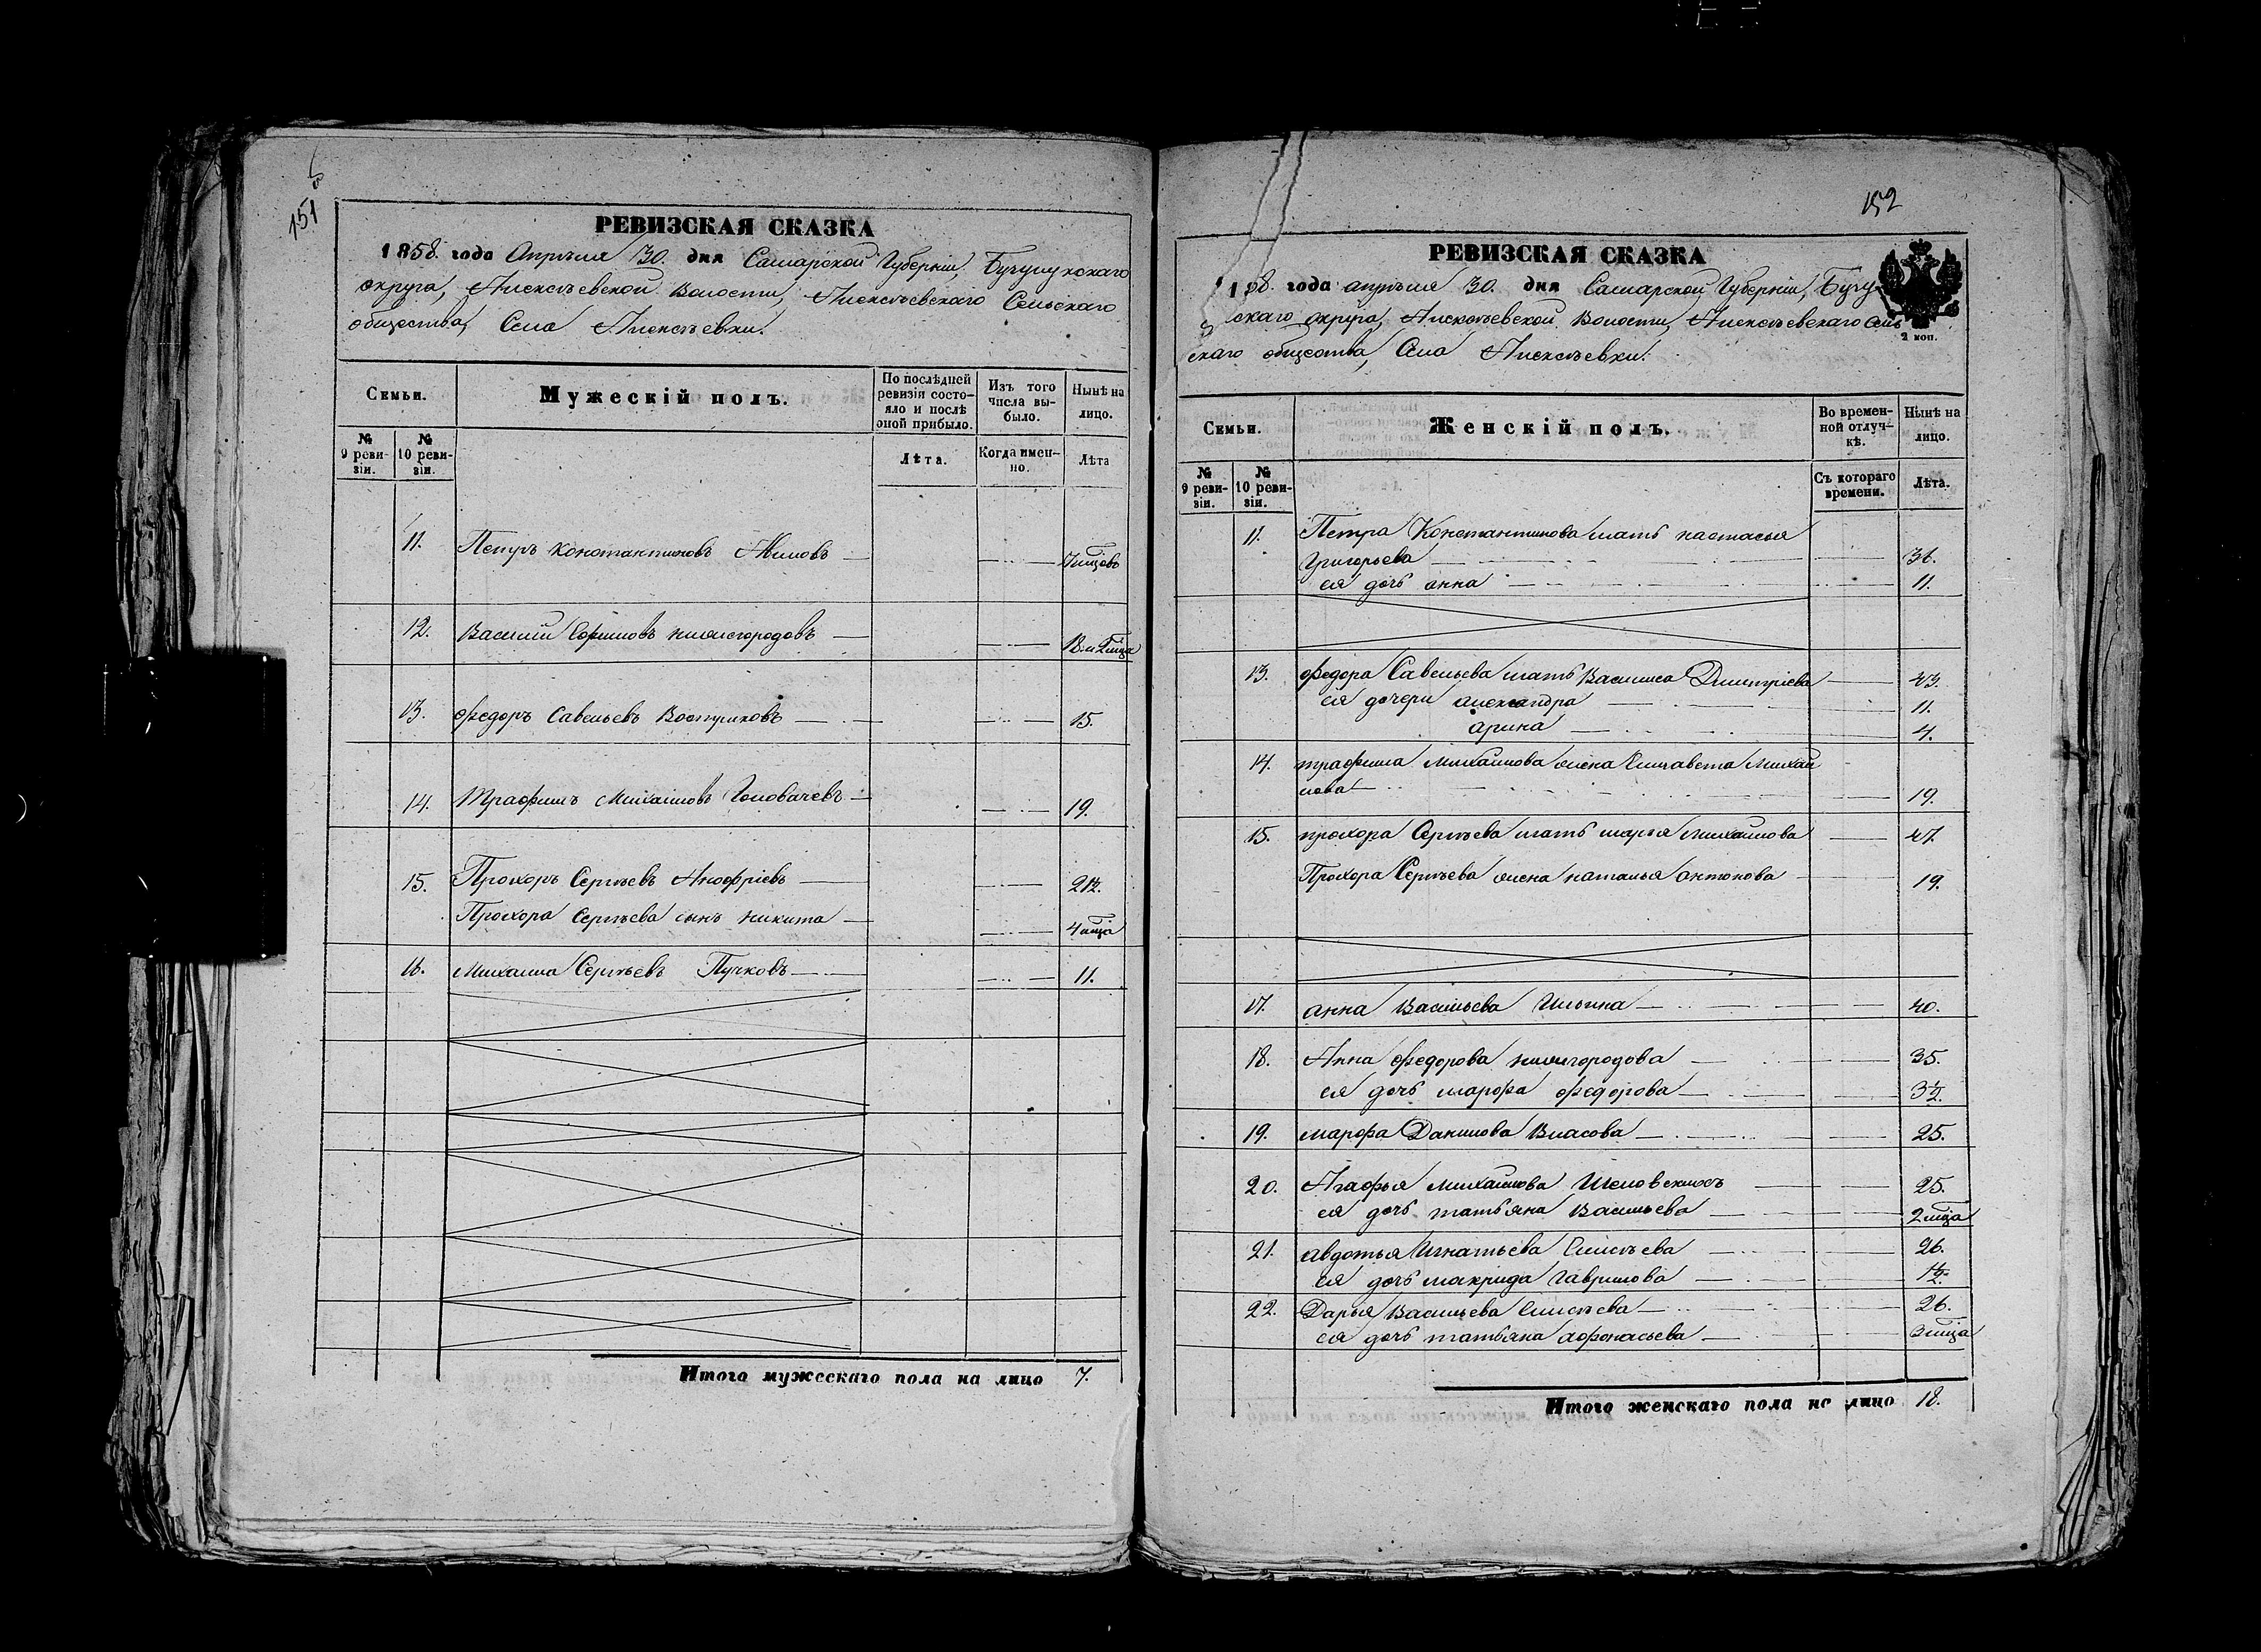 151
РЕВИЗСКАЯ СКАЗКА
1858. года Апрѣля 30. дня Самарской Губерніи, Бугульскаго
округа, Алексѣевской Волости, Алексѣевскаго Сельскаго
общества, Села Алексѣевки.
Семьи.
Мужескій полъ.
По послѣдней ревизіи состояло и послѣ оной прибыло.
Изъ того числа выбыло.
Нынѣ на лицо.
№ 9 ревизіи.
№ 10 ревизіи.
Лѣта.
Когда именно.
Лѣта
11. Петръ Константиновъ
12. Василий Ефимовъ нижегородовъ
13. Федоръ Савельевъ Востриковъ 15.
14. Трафимъ Михайловъ Головачевъ 19.
15. Прохоръ Сергѣевъ Анофріевъ
Прохора Сергѣева сынъ никита 4 мца
16. Михаила Сергѣевъ Пучковъ 11.
Итого мужескаго пола на лицо 7.
152
РЕВИЗСКАЯ СКАЗКА
1 58. года апрѣля 30. дня Самарской Губерніи, Бугу
скаго округа, Алексѣевской Волости, Алексѣевскаго Сель
скаго общества, Села Алексѣевки.
2 коп.
Семьи.
Женскій полъ.
Во временной отлучкѣ.
Нынѣ на лицо.
№ 9 ревизіи.
№ 10 ревизіи.
Съ котораго времени.
Лѣта.
11. Петра Константинова мать настасья
Григорьева 36.
ея дочь анна 11.
13. Федора Савельева мать Василиса Дмитріева 43.
ея дочери александра 11.
арина 4.
14. трафима Михайлова жена Елизавета Михай
лова 19.
15. прохора Сергѣева мать марья Михайлова 47.
Прохора Сергѣева жена наталья антонова 19.
17. анна Васильева Ильина 40.
18. Анна Федорова нижегородова 35.
ея дочь марфа федорова 3½.
19. марфа Данилова Власова 25.
20. Агафья михайлова 25.
ея дочь татьяна Васильева 2 мца
21. авдотья Игнатьева Елисѣева 26.
ея дочь макрида гаврилова 1½.
22. Дарья Васильева Елисѣева 26.
ея дочь татьяна афонасьева 3 мца
Итого женскаго пола на лицо 18.